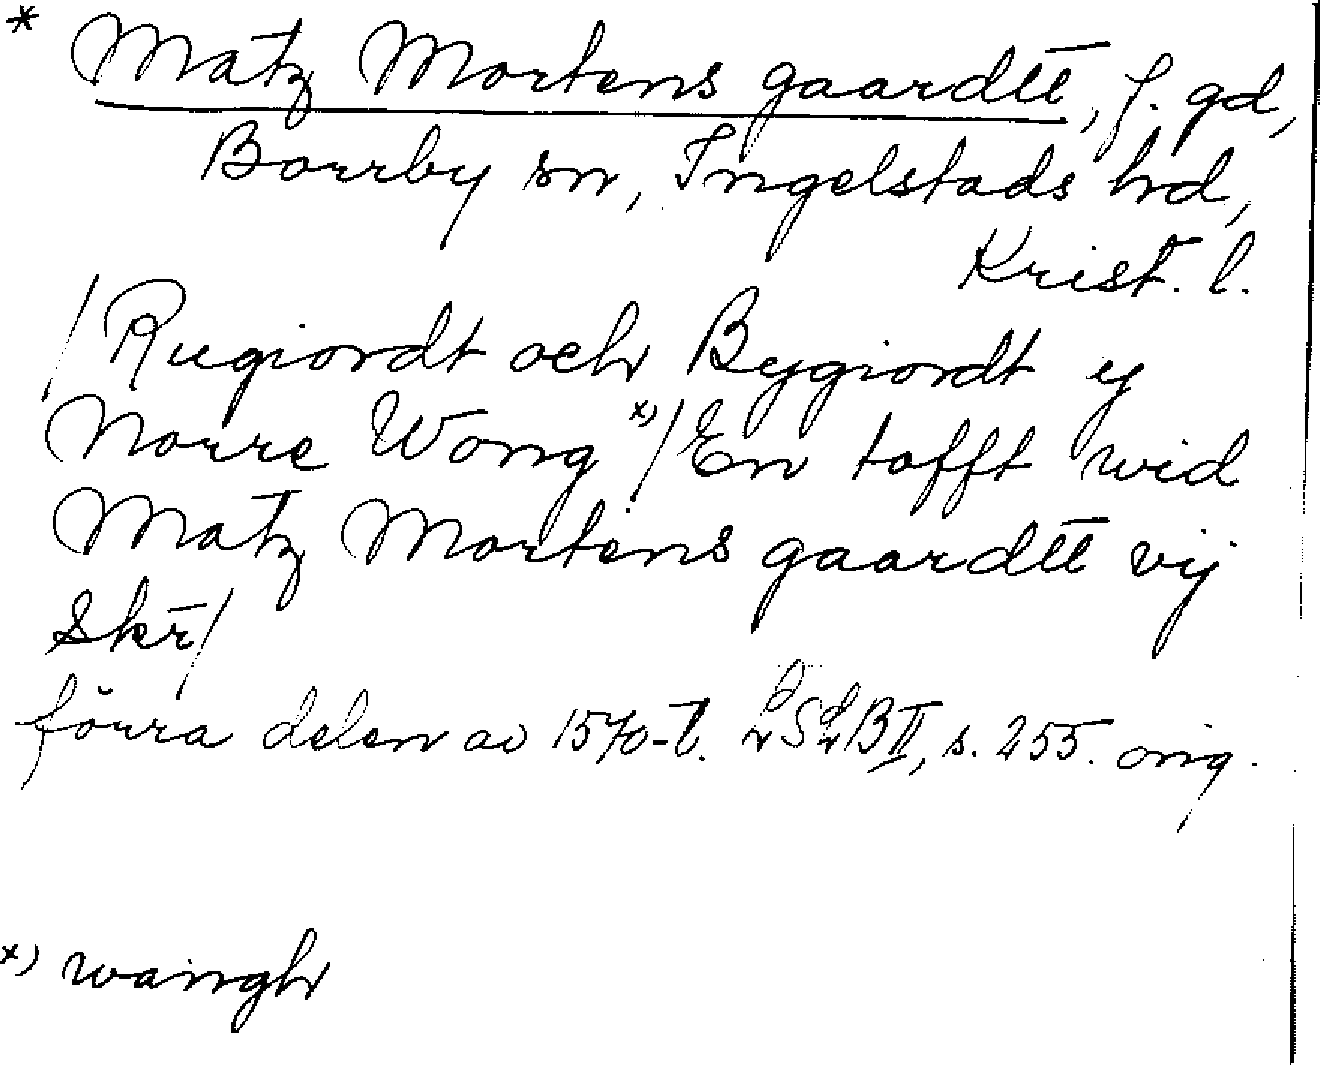 * Matz Mortens gaardtt, f. gd,
Borrby sn, Ingelstads hd,
Krist. l.
/Rugiordt och Bygiordt y
Norre Wong x)/En tofft wid
Matz Mortens gaardtt vij
Skr/
förra delen av 1570-t. LSLB II, s. 255. orig.
x) wangh